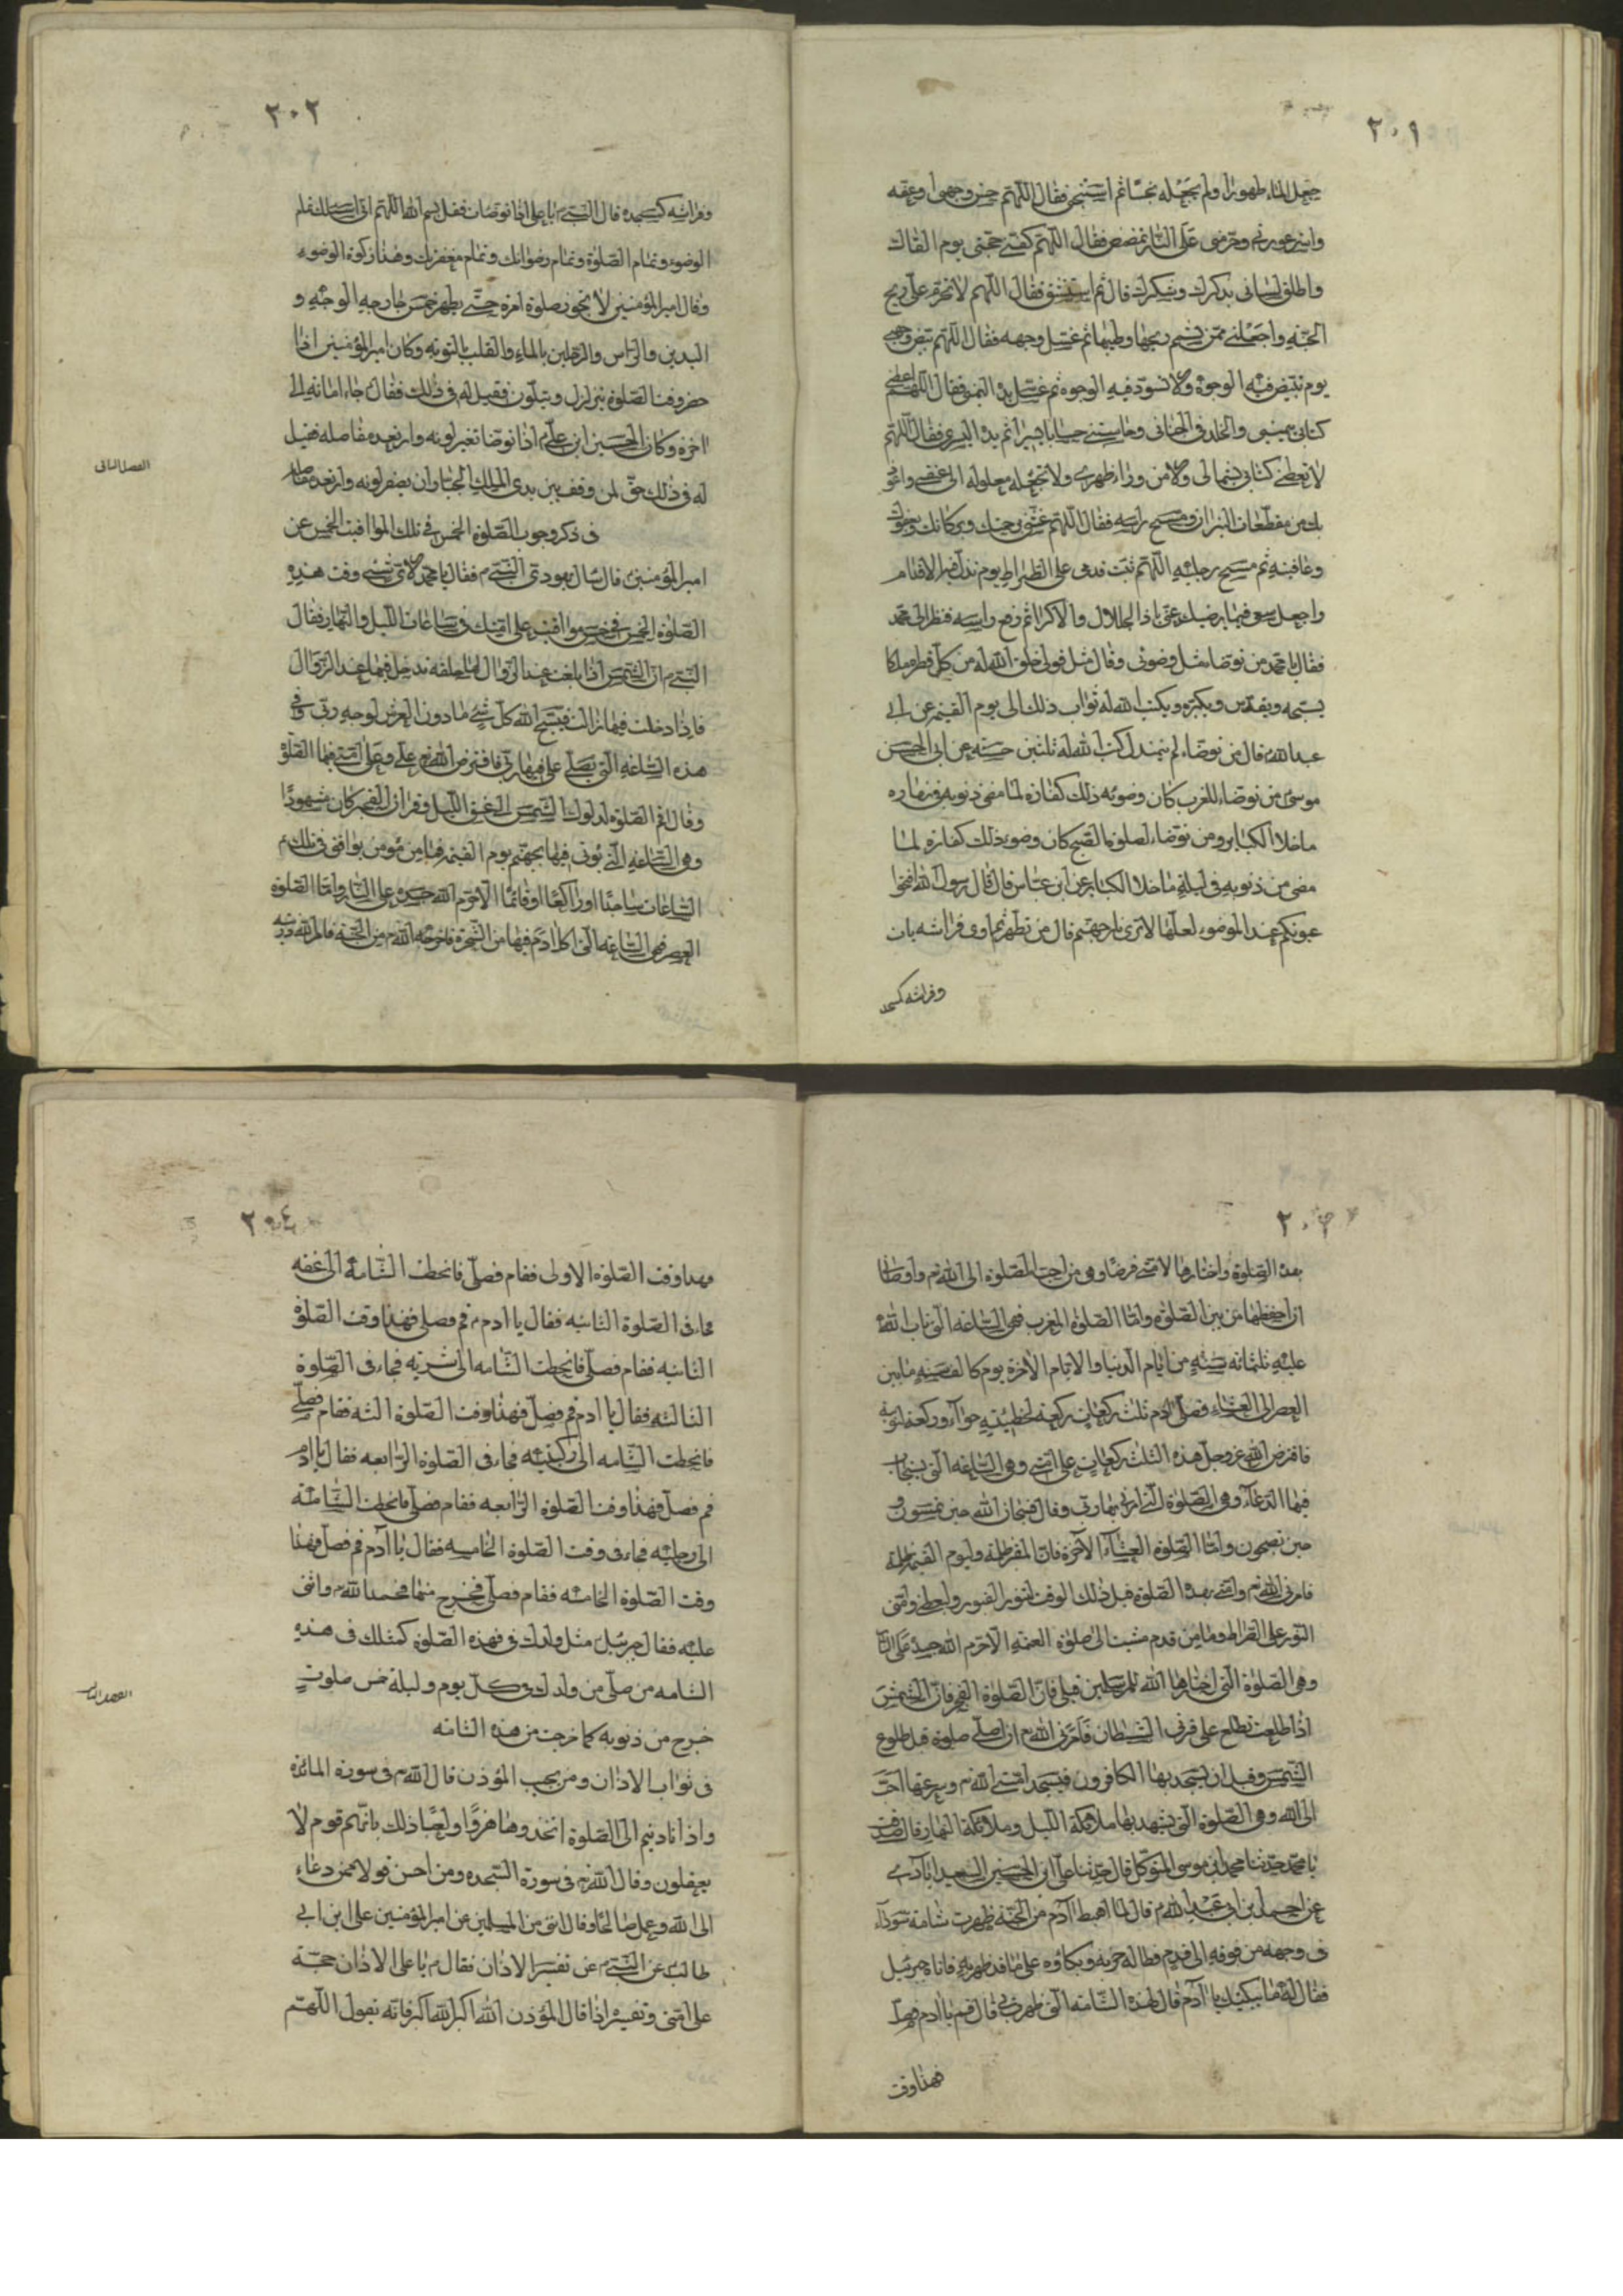 ٢٠١
جعل الماء طهورا ولم يجعله نجسا ثم استنجى فقال اللهم حصن وجهى واعفه
واستر عورتى وحرمنى على النار ثم تمضمض فقال اللهم لقنى حجتى يوم القاك
واطلق لسانى بذكرك وشكرك قال ثم استنشق فقال اللهم لا تحرم على ريح
الجنة واجعلنى ممن يشم ريحها وطيبها ثم غسل وجهه فقال اللهم بيض وجهى
يوم تبيض فيه الوجوه ولا تسود فيه الوجوه ثم غسل يده اليمنى فقال اللهم اعطنى
كتابى بيمينى والخلد فى الجنانى وحاسبنى حسابا يسيرا ثم يده اليسرى فقال اللهم
لا تعطنى كتابى بشمالى ولا من وراء ظهرى ولا تجعله مغلولة الى عنقى واعوذ
بك من مقطعات النيران ومسح راسه فقال اللهم غشنى برحمتك وبركاتك وعفوك
وعافيته ثم مسح رجليه اللهم ثبت قدمى على الصراط يوم تزل فيه الاقدام
واجعل سعيى فيما يرضيك عنى ياذا الجلال والاكرام ثم رفع راسه فنظر الى محمد
فقال يا محمد من توضاء مثل وضوئى وقال مثل قولى خلق الله له من كل قطرة ملكا
يسبحه ويقدس ويكبره ويكتب الله له ثواب ذلك الى يوم القيمة عن ابى
عبد الله قال من توضاء لم يتمندل كتب الله له ثلثين حسنة عن ابى الحسن
موسى من توضاء للمغرب كان وضوئه ذلك كفارة لما مضى ذنوبه فى نهاره
ما خلا الكباير ومن توضاء لصلوة الصبح كان وضوئه ذلك كفارة لما
مضى من ذنوبه فى ليلة ما خلا الكباير عن ابن عباس قال قال رسول الله افتحوا
عيونكم عند الوضوء لعلها لا ترى نار جهنم قال من تطهر ثم اوى فراشه بات
وفراشه كمسجد
٢٠٢
وفراشه كمسجده قال النبى يا على اذا توضات فقل بسم الله اللهم انى اسئلك تمام
الوضوء وتمام الصلوة وتمام رضوانك وتمام مغفرتك وهذا زكوة الوضوء
وقال امير المؤمنين لا يجوز صلوة امرء حتى يطهر خمس جارحه الوجه و
اليدين والراس والرجلين بالماء والقلب بالتوبة وكان امير المؤمنين اذا
حضر وقت الصلوة يتزلزل ويتلون فقيل له فى ذلك فقال جاء امانة الى
اخره وكان الحسين ابن على اذا توضا تغير لونه وارتعد مفاصله فقيل
له فى ذلك حق لمن وقف بين يدى الملك الجبار ان يصفر لونه وارتعد مفاصله
الفصل الثانى
فى ذكر وجوب الصلوة الخمس فى تلك المواقيت الخمس عن
امير المؤمنين قال سال يهودى النبى فقال يا محمد لاى شئ وقت هذه
الصلوة الخمس فى خمس مواقيت على امتك فى ساعات الليل والنهار فقال
النبى ان الشمس اذا بلغت عند الزوال لها حلقة تدخل فيها عند الزوال
فاذا دخلت فيها زالت فيسبح الله كل شئ ما دون العرش لوجه ربى وفى
هذه الساعة التى يصلى على فيها ربى فافترض الله على وعلى امتى فيها الصلوة
وقال اقم الصلوة لدلوك الشمس الى غسق الليل وقران الفجر كان مشهودا
وهى الساعة التى يؤتى فيها بجهنم يوم القيمة فما من مؤمن يوافق فى تلك
الساعات ساجدا او راكعا او قائما الا حرم الله جسده على النار واما الصلوة
العصر فهى الساعة التى اكل ادم فيها من الشجرة فاخرجه الله من الجنة فامر الله ذريته
٢٠٣
بهذه الصلوة واختارها لامتى فرضا وهى من احب الصلوة الى الله واوصانا
ان احفظها من بين الصلوة واما الصلوة المغرب فهى الساعة التى تاب الله
عليه ثلثمائة سنة من ايام الدنيا والايام الاخرة يوم كالف سنة ما بين
العصر الى العشاء فصلى ادم ثلث ركعات ركعة لخطيئته حواء وركعة لتوبة
فافترض الله عز وجل هذه الثلث ركعات على امتى وهى الساعة التى يستجاب
فيها الدعاء وهى الصلوة التى امرنى بها ربى وقال فسبحان الله حين تمسون و
حين تصبحون واما الصلوة العشاء الآخرة فان للقبر ظلمة وليوم القيمة ظلمة
فامرنى الله وامتى بهذه الصلوة قبل ذلك الوقت لتنور القبور وليعطى وامتى
النور على الصراط وما من قدم مشيت الى صلوة العتمة الا حرم الله جسده على النار
وهى الصلوة التى اختارها الله للمرسلين قبلى فان الصلوة الفجر فان الشمس
اذا طلعت تطلع على قرنى الشيطان فامرنى الله ان اصلى صلوة قبل طلوع
الشمس وقبل ان يسجد بها الكافرون فيسجد امتى الله وسرعتها احب
الى الله وهى الصلوة التى يشهد بها ملائكة الليل وملائكة النهار قال صدقت
يا محمد حدثنا محمد ابن موسى المتوكل قال حدثنا على ابن الحسين السعد ابادى
عن احمد بن ابى عبد الله قال لما اهبط آدم من الجنة ظهرت شامة سوداء
فى وجهه من قرنه الى قدم فطال حزنه وبكاؤه على ما قد ظهر به فاتاه جبرئيل
فقال له ما يبكيك يا آدم قال لهذه الشامة التى ظهر بى قال قم يا ادم فصل
فهذا وقت
٢٠٤
فهذا وقت الصلوة الاولى فقام فصلى فانحطت الشامة الى عنقه
فجاء فى الصلوة الثانية فقال يا ادم قم فصلى فهذا وقت الصلوة
الثانية فقام فصلى فانحطت الشامة الى سرته فجاء فى الصلوة
الثالثة فقال يا ادم قم فصل فهذا وقت الصلوة الثه فقام فصلى
فانحطت الشامة الى ركبتيه فجاء فى الصلوة الرابعة فقال يا ادم
قم فصل فهذا وقت الصلوة الرابعة فقام فصلى فانحطت الشامة
الى رجليه فجاء فى وقت الصلوة الخامسة فقال يا آدم قم فصل فهذا
وقت الصلوة الخامسة فقام فصلى فخرج منها فحمد الله واثنى
عليه فقال جبرئيل مثل ولدك فى فهذه الصلوة كمثلك فى هذه
الشامه من صلى من ولدك فى كل يوم وليلة خمس صلوت
خرج من ذنوبه كما خرجت من هذه الشامة
الفصل الثالث
فى ثواب الاذان ومن يجيب المؤذن قال الله فى سورة المائدة
واذا ناديتم الى الصلوة اتخذوها هزوا ولعبا ذلك بانهم قوم لا
يعقلون وقال الله فى سورة السجدة ومن احسن قولا ممن دعاء
الى الله وعمل صالحا وقال اننى من المسلمين عن امير المؤمنين على ابن ابى
طالب عن النبى عن تفسير الاذان فقال يا على الاذان حجة
على امتى وتفسيره اذا قال المؤذن الله اكبر الله اكبر فانه يقول اللهم